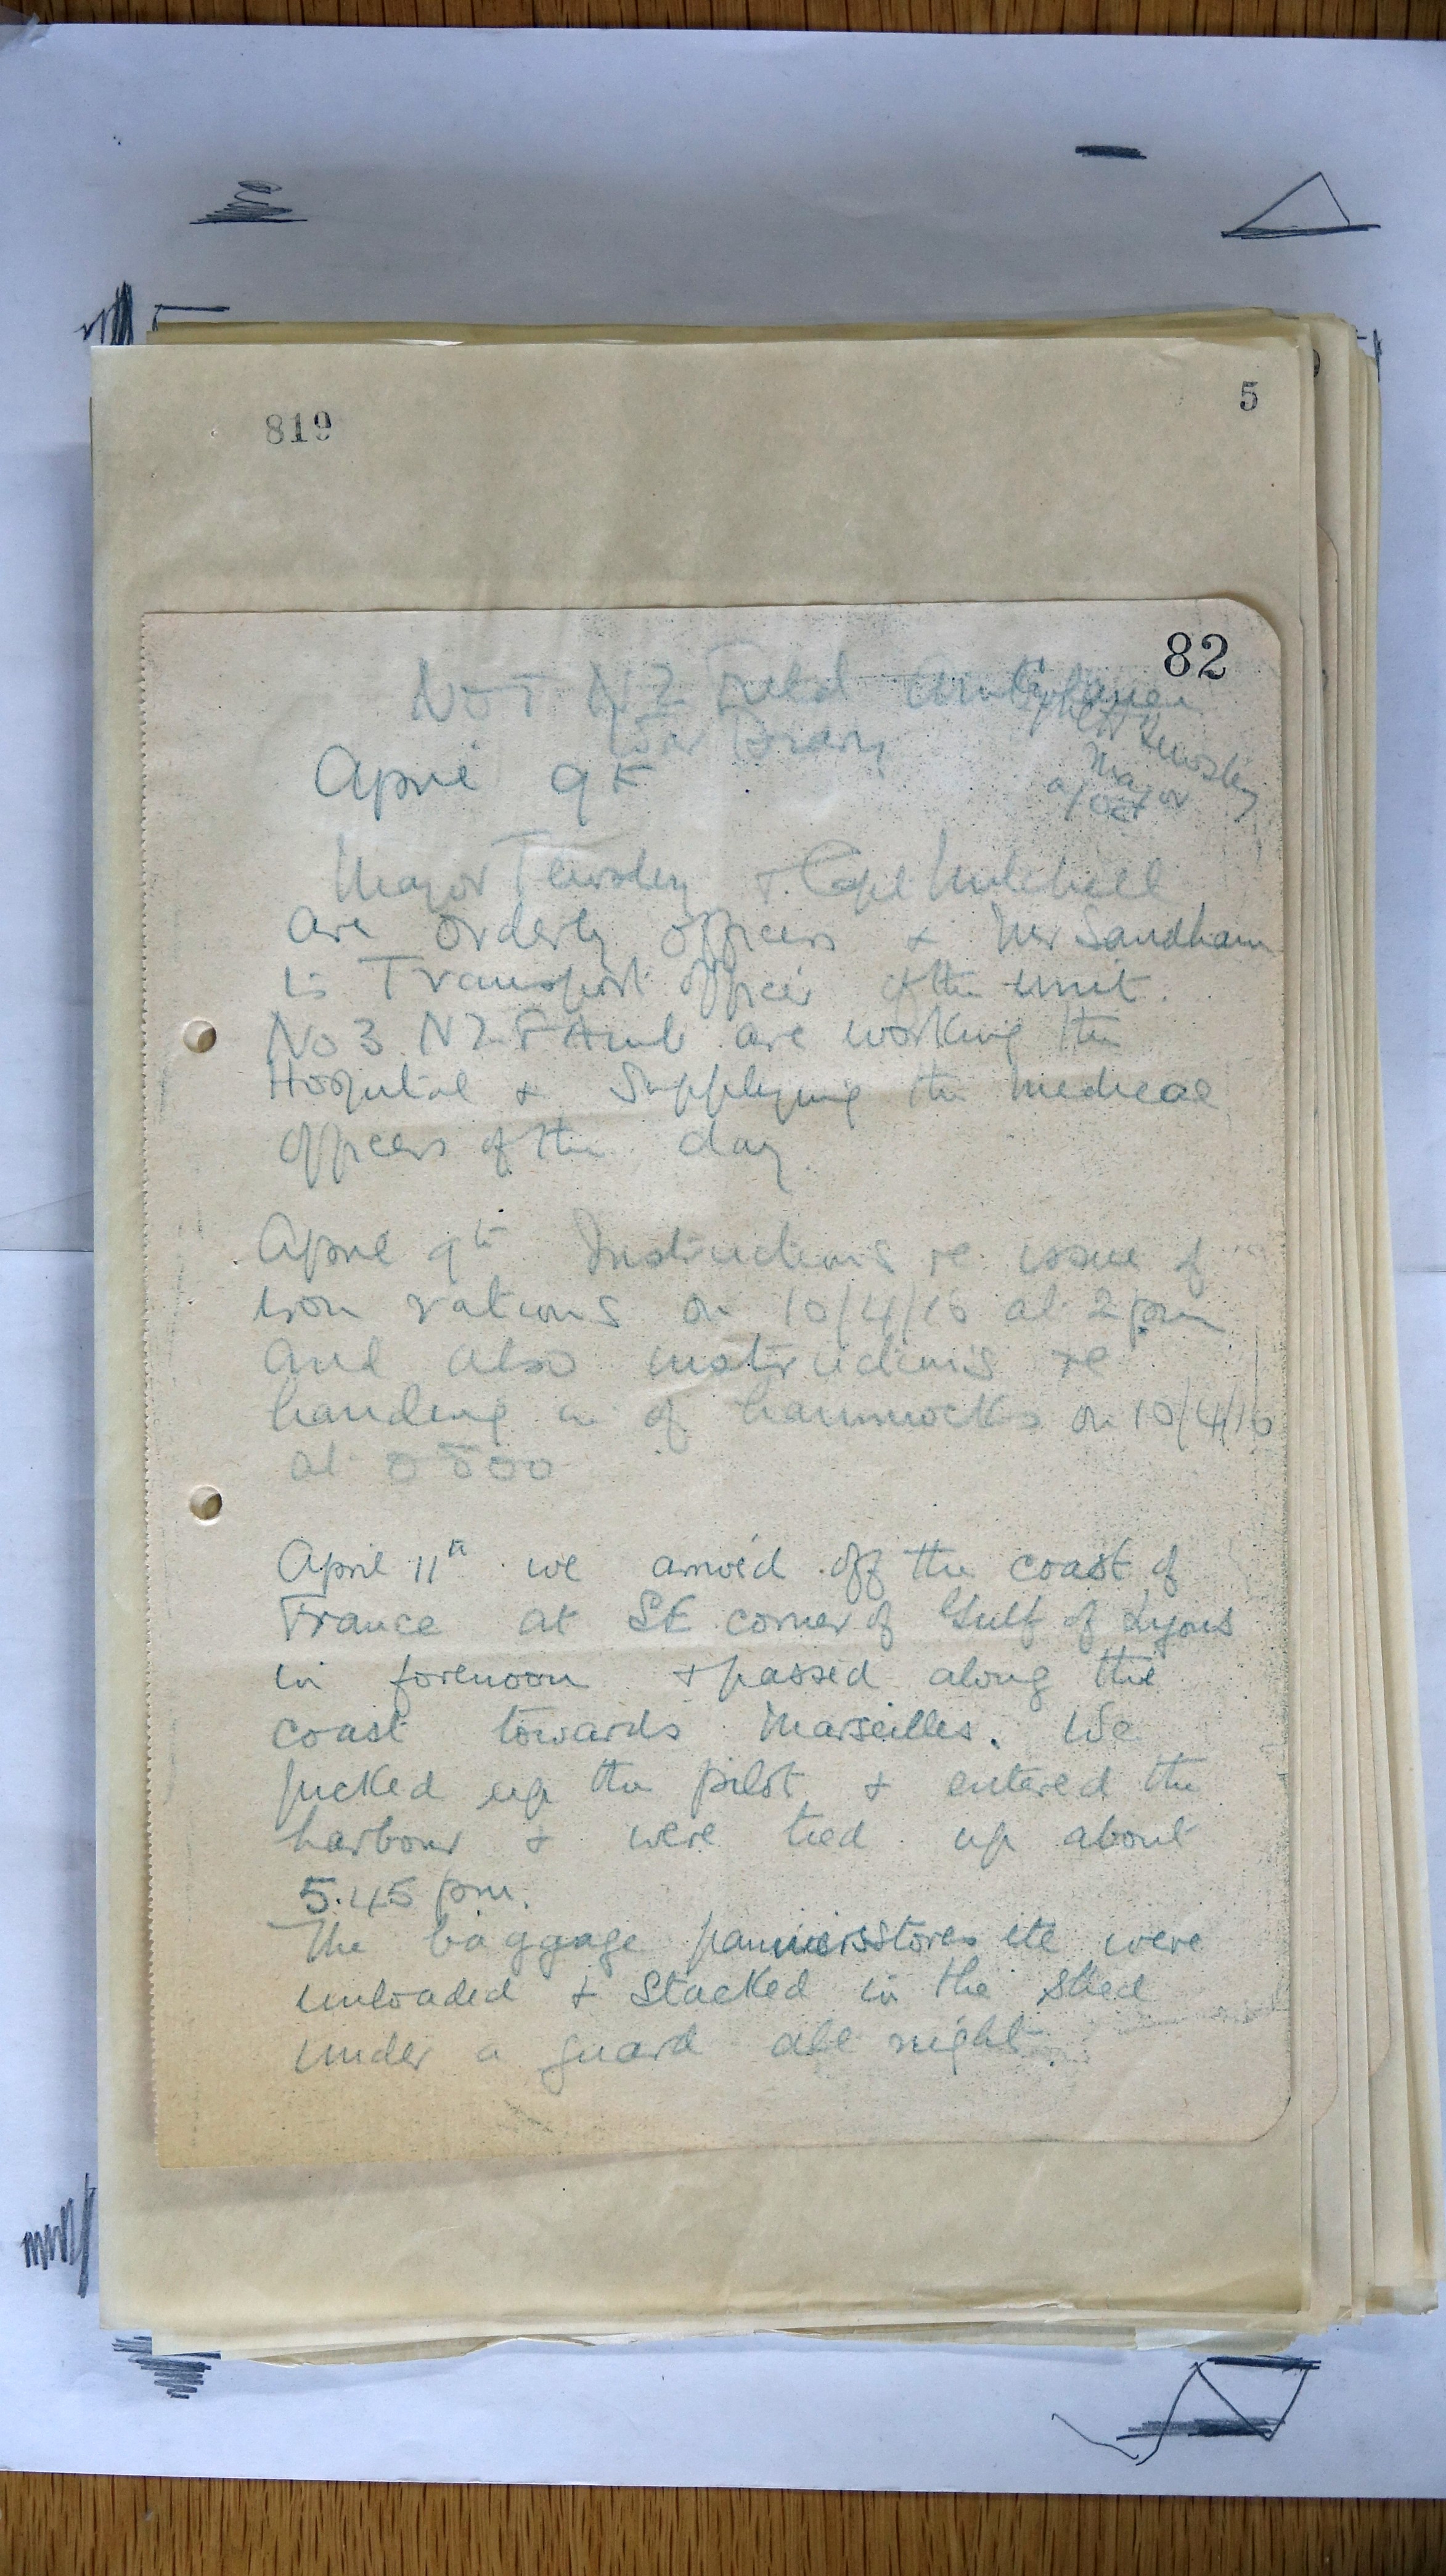 819
5
82
No 1 NZ Field Ambulance
War Diary
Cyril H Tewsley
Major
a/OC
April 9th
Major Tewsley & Capt Mitchell
are orderly officers & Mr Sandham
is Transport officer of the unit.
No 3 NZ F Amb are working the
Hospital & supplying the medical
officers of the day.
April 9th Instructions re issue of
iron rations on 10/4/16 at 2 pm
and also instructions re
handing in of hammocks on 10/4/16
at 0800
April 11th we arrived off the coast of
France at SE corner of Gulf of Lyons
in forenoon & passed along the
coast towards Marseilles. We
picked up the pilot & entered the
harbour & were tied up about
5.45 pm.
The baggage panniers stores etc were
unloaded & stacked in the shed
under a guard all night.